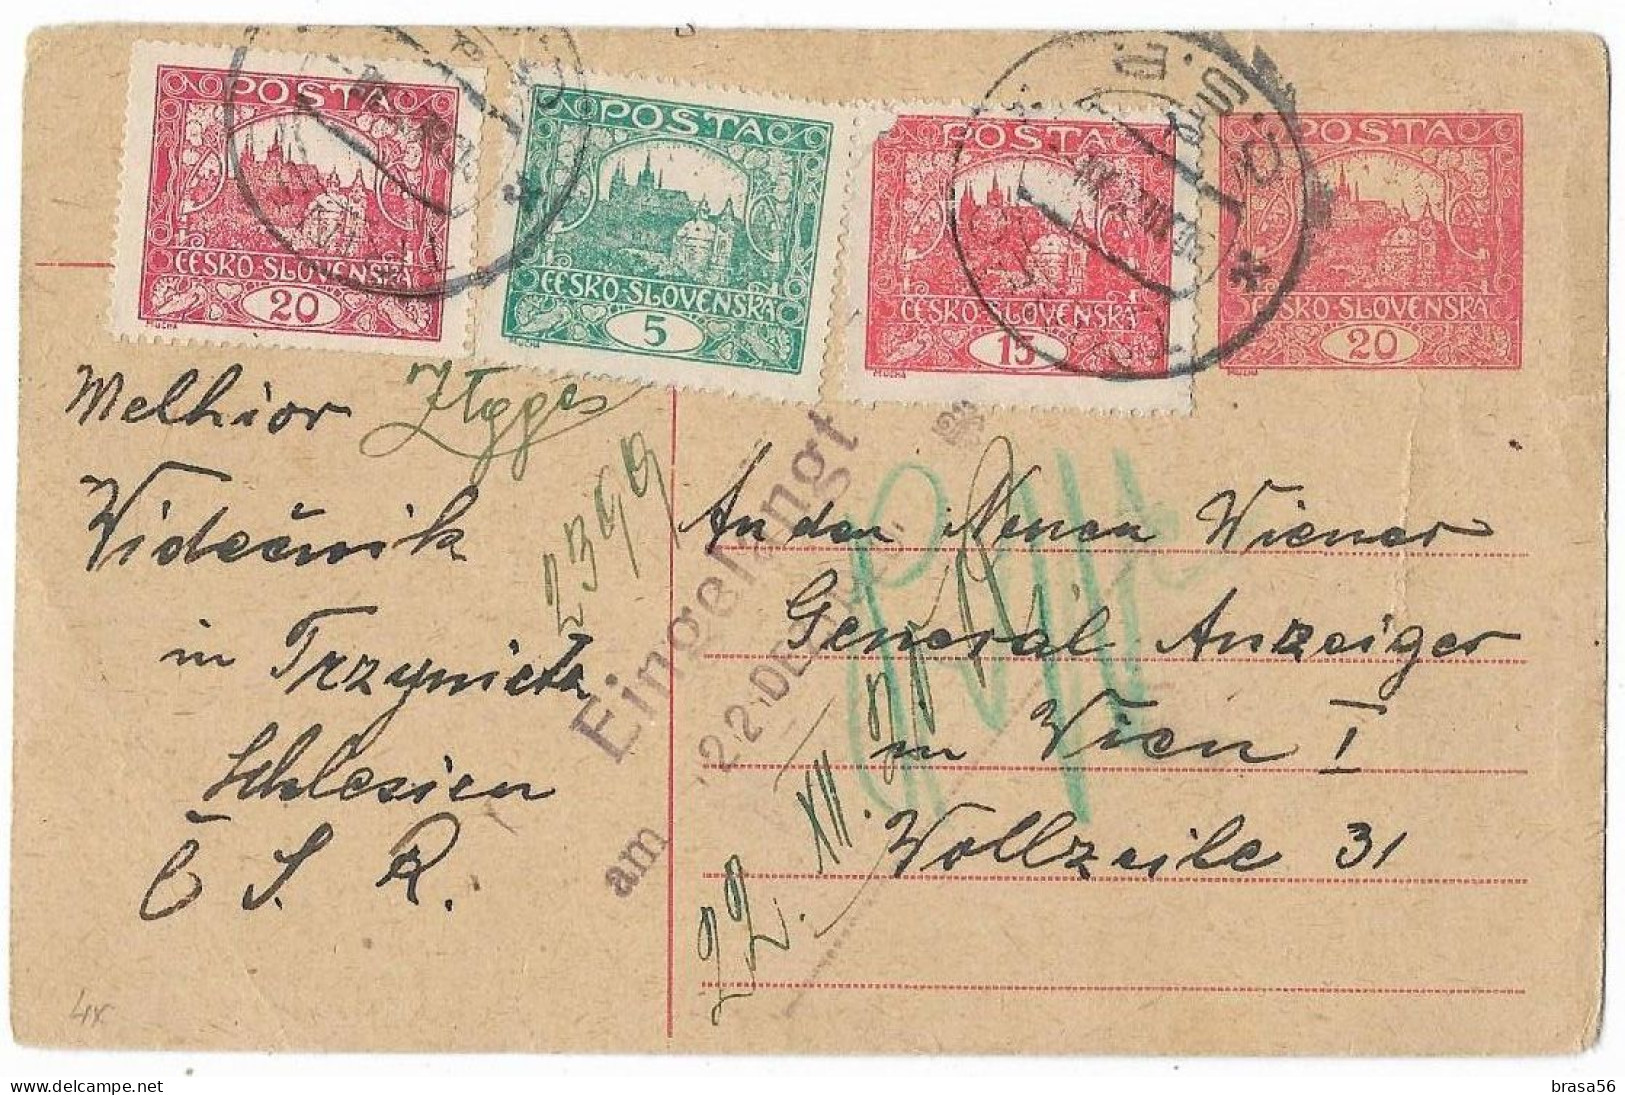 POSTA
ČESKO-SLOVENSKÁ
20
MUCHA
POSTA
ČESKO-SLOVENSKÁ
5
MUCHA
POSTA
ČESKO-SLOVENSKÁ
15
MUCHA
POSTA
ČESKO-SLOVENSKÁ
20
MUCHA
Č.S.P.
Melhior
Widečnik
in Trzynietz
Schlesien
Č. S. R.
2399
Eingelangt
am 22. DEZ.
22. XII.
An den Neuen Wiener
General Anzeiger
in Wien I
Wollzeile 31
brasa56